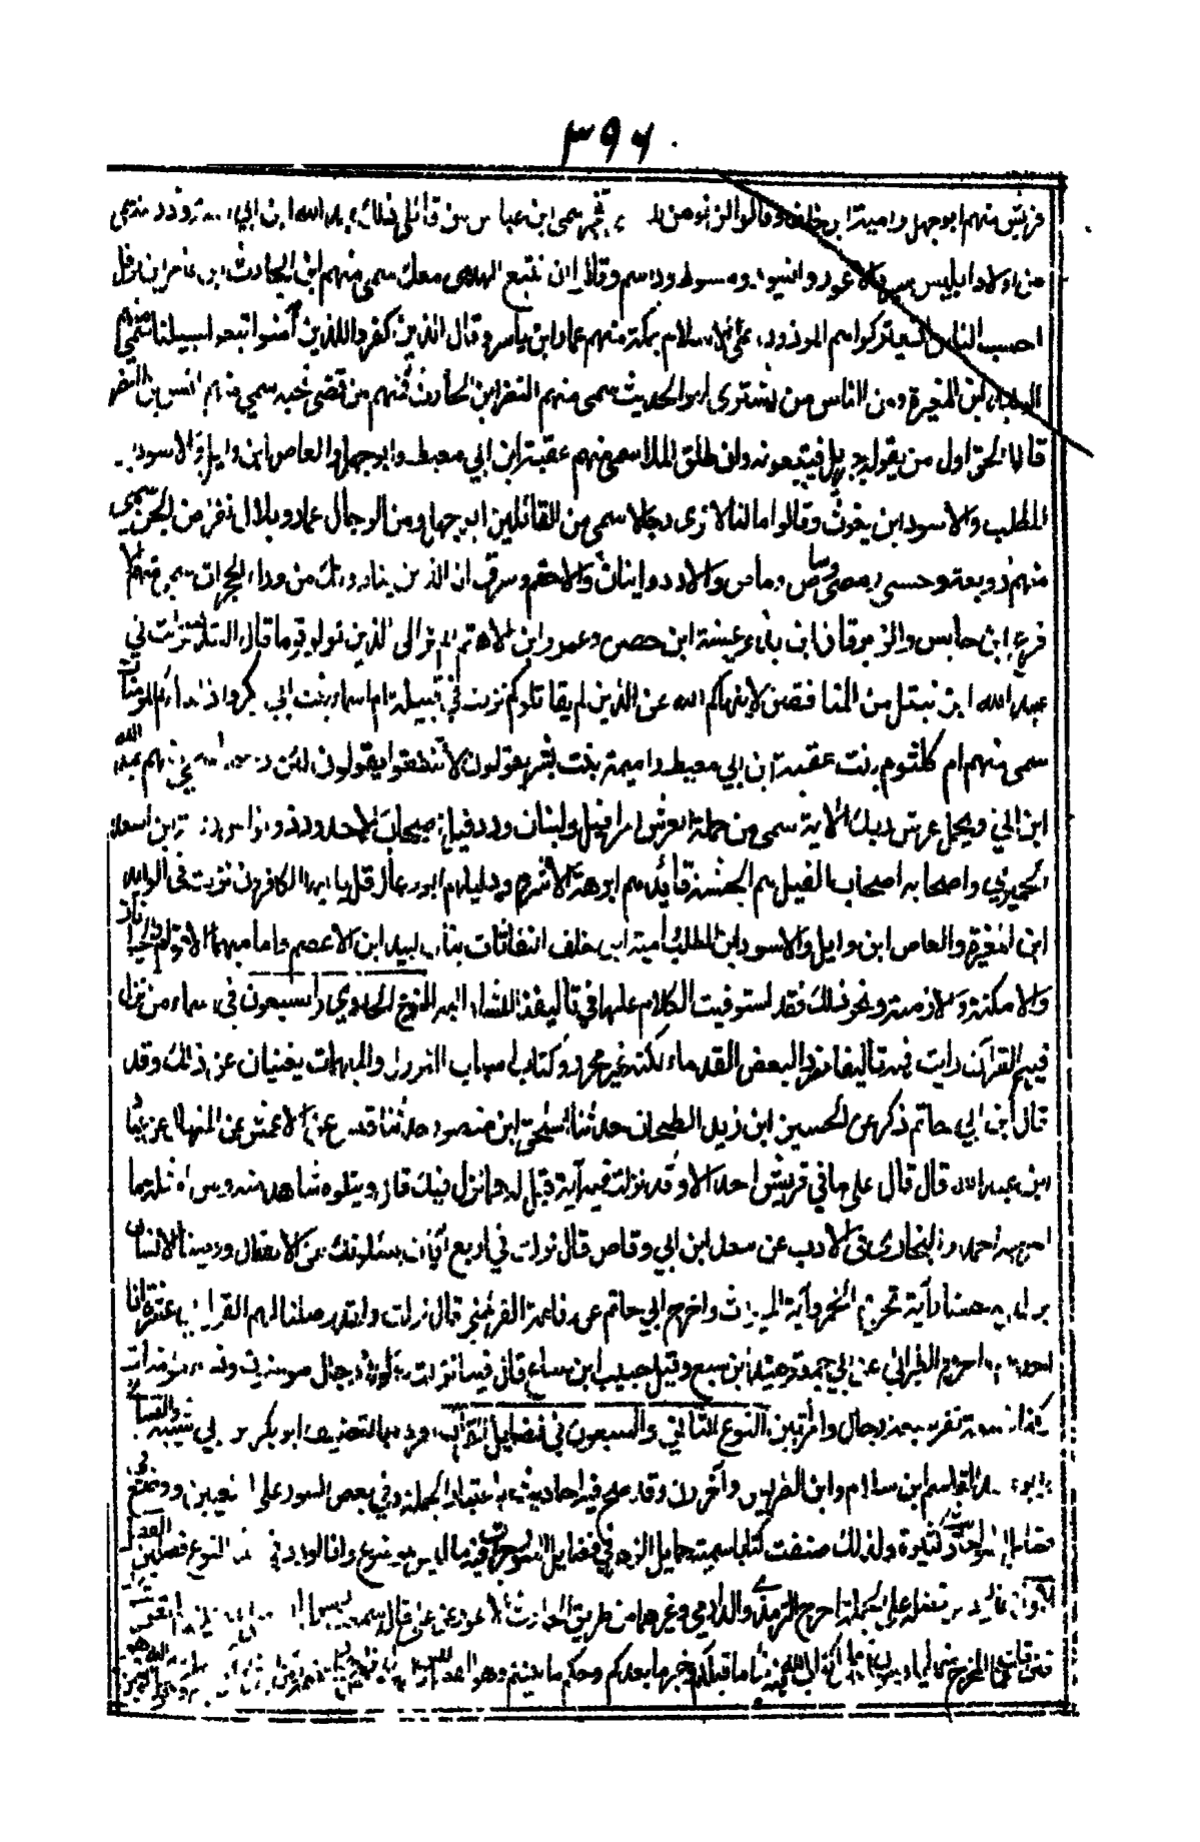 ٣٩٦
قريش منهم ابوجهل وامية ابن خلف وقالوا لن نؤمن لك سمى ابن عباس من قائلي ذلك عبد الله ابن ابي امية وذريته
من اولاد ابليس والاعور ومسوط وداسم وقالوا ان نتبع الهدى معك سمى منهم ابن الحارث ابن عامر ابن نوفل
احسب الناس ان يتركوا هم الموذون على الاسلام بمكة منهم عمار ابن ياسر وقال الذين كفروا للذين آمنوا اتبعوا سبيلنا سمى منهم
الوليد ابن المغيرة ومن الناس من يشترى لهو الحديث سمى منهم النضر ابن الحارث فمنهم من قضى نحبه سمي منهم انس بن النضر
قالوا الحق اول من يقوله جبريل فيتبعونه وانطلق الملأ سمى منهم عقبة ابن ابي معيط وابوجهل والعاص ابن وايل والاسود بن
المطلب والاسود ابن يغوث وقالوا ما لنا لا نرى رجالا سمى من القائلين ابوجهل ومن الرجال عمار وبلال نفر من الجن سمى
منهم زوبعة وحسى ومسى وشاص وماص والارد واينان والاحقم وسرق ان الذين ينادونك من وراء الحجرات سمى منهم الا
قرع ابن حابس والزبرقان ابن بدر وعيينة ابن حصن وعمرو ابن الاهتم الم تر الى الذين تولوا قوما قال السدي نزلت في
عبد الله ابن نبتل من المنافقين لا ينهاكم الله عن الذين لم يقاتلوكم نزلت في قبيلة ام اسماء بنت ابي بكر اذا جاءكم المومنات
سمى منهم ام كلثوم بنت عقبة ابن ابي معيط واميمة بنت بشر يقولون لا تنفقوا يقولون لئن رجعنا سمي منهم عبد الله
ابن ابي ويحمل عرش ربك الآية سمى من حملة العرش اسرافيل ولبنان وروفيل اصحاب الاخدود ذو نواس زرعة ابن اسعد
الحميري واصحابه اصحاب الفيل هم الحبشة قائدهم ابرهة الاشرم ودليلهم ابو رغال قل يا ايها الكافرون نزلت في الوليد
ابن المغيرة والعاص ابن وايل والاسود ابن المطلب وامية ابن خلف النفاثات بنات لبيد ابن الاعصم واما مبهمات الاقوام والحيوانات
والامكنة والازمنة ونحو ذلك فقد استوفيت الكلام عليها في تاليفنا المشار اليه النوع الحادي والسبعون في اسماء من نزل
فيهم القرآن رايت فيهم تاليفا مفردا لبعض القدماء لكنه غير محرر وكتاب اسباب النزول والمبهمات يغنيان عن ذلك وقد
قال ابن ابي حاتم ذكر عن الحسين ابن زيد الطحان حدثنا اسحق ابن منصور حدثنا قيس عن الاعمش عن المنهال عن عباد
ابن عبد الله قال قال علي ما في قريش احد الا وقد نزلت فيه آية قيل له فما نزل فيك قال ويتلوه شاهد منه ومن امثلته ما
اخرجه احمد والبخاري في الادب عن سعد ابن ابي وقاص قال نزلت في اربع آيات يسئلونك عن الانفال ووصينا الانسان
بوالديه حسنا وآية تحريم الخمر وآية الميراث واخرج ابن ابي حاتم عن رفاعة القرظي قال نزلت ولقد وصلنا لهم القول في عشرة انا
احدهم واخرج الطبراني عن ابي جمعة جنيد ابن سبع وقيل حبيب ابن سباع قال فينا نزلت ولولا رجال مومنون ونساء مومنات
وكنا تسعة نفر سبعة رجال وامرأتين النوع الثاني والسبعون في فضايل القرآن افرده بالتصنيف ابو بكر ابن ابي شيبة والنسائي
وابو عبيد القاسم ابن سلام وابن الضريس وآخرون وقد صح فيه احاديث باعتبار الجملة وفي بعض السور على التعيين ووضع في
فضايل القرآن احاديث كثيرة ولذلك صنفت كتابا سميته حمايل الزهر في فضايل السور حررت فيه ما ليس بموضوع وانا اورد في هذا النوع فصلين الفصل
الاول فيما ورد في فضله على الجملة اخرج الترمذي والدارمي وغيرهما من طريق الحارث الاعور عن علي قال سمعت رسول الله
قلت فما المخرج منها يا رسول الله قال كتاب الله فيه نبأ ما قبلكم وخبر ما بعدكم وحكم ما بينكم وهو الفصل